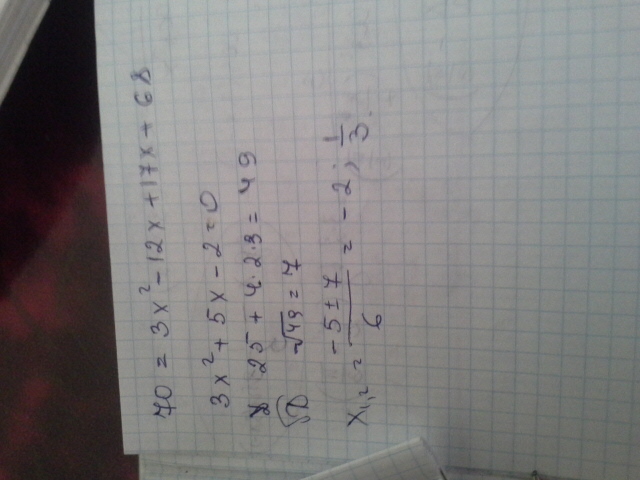 70 = 3x² - 12x + 17x + 68
3x² + 5x - 2 = 0
25 + 4·2·3 = 49
√D √49 = 7
x₁,₂ = (-5 ± 7)/6 = -2; 1/3.